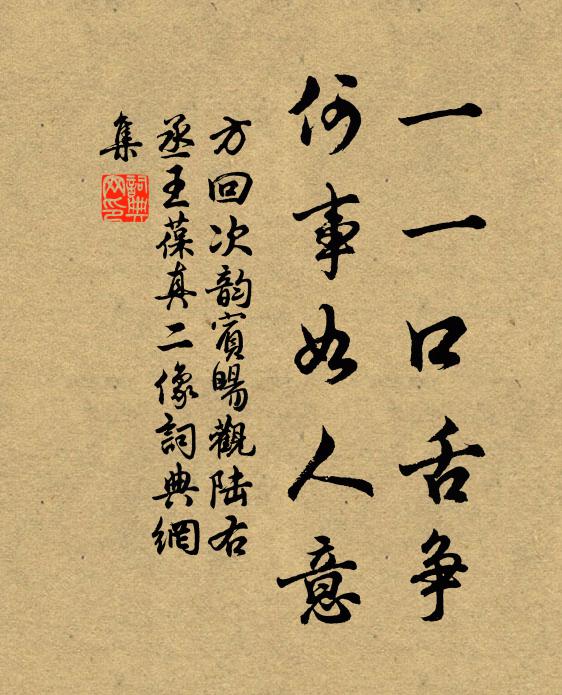 一一口舌争
何事如人意
方回次韵賓暘觀陆右
丞王葆真二像詞典網
集
詞典网印